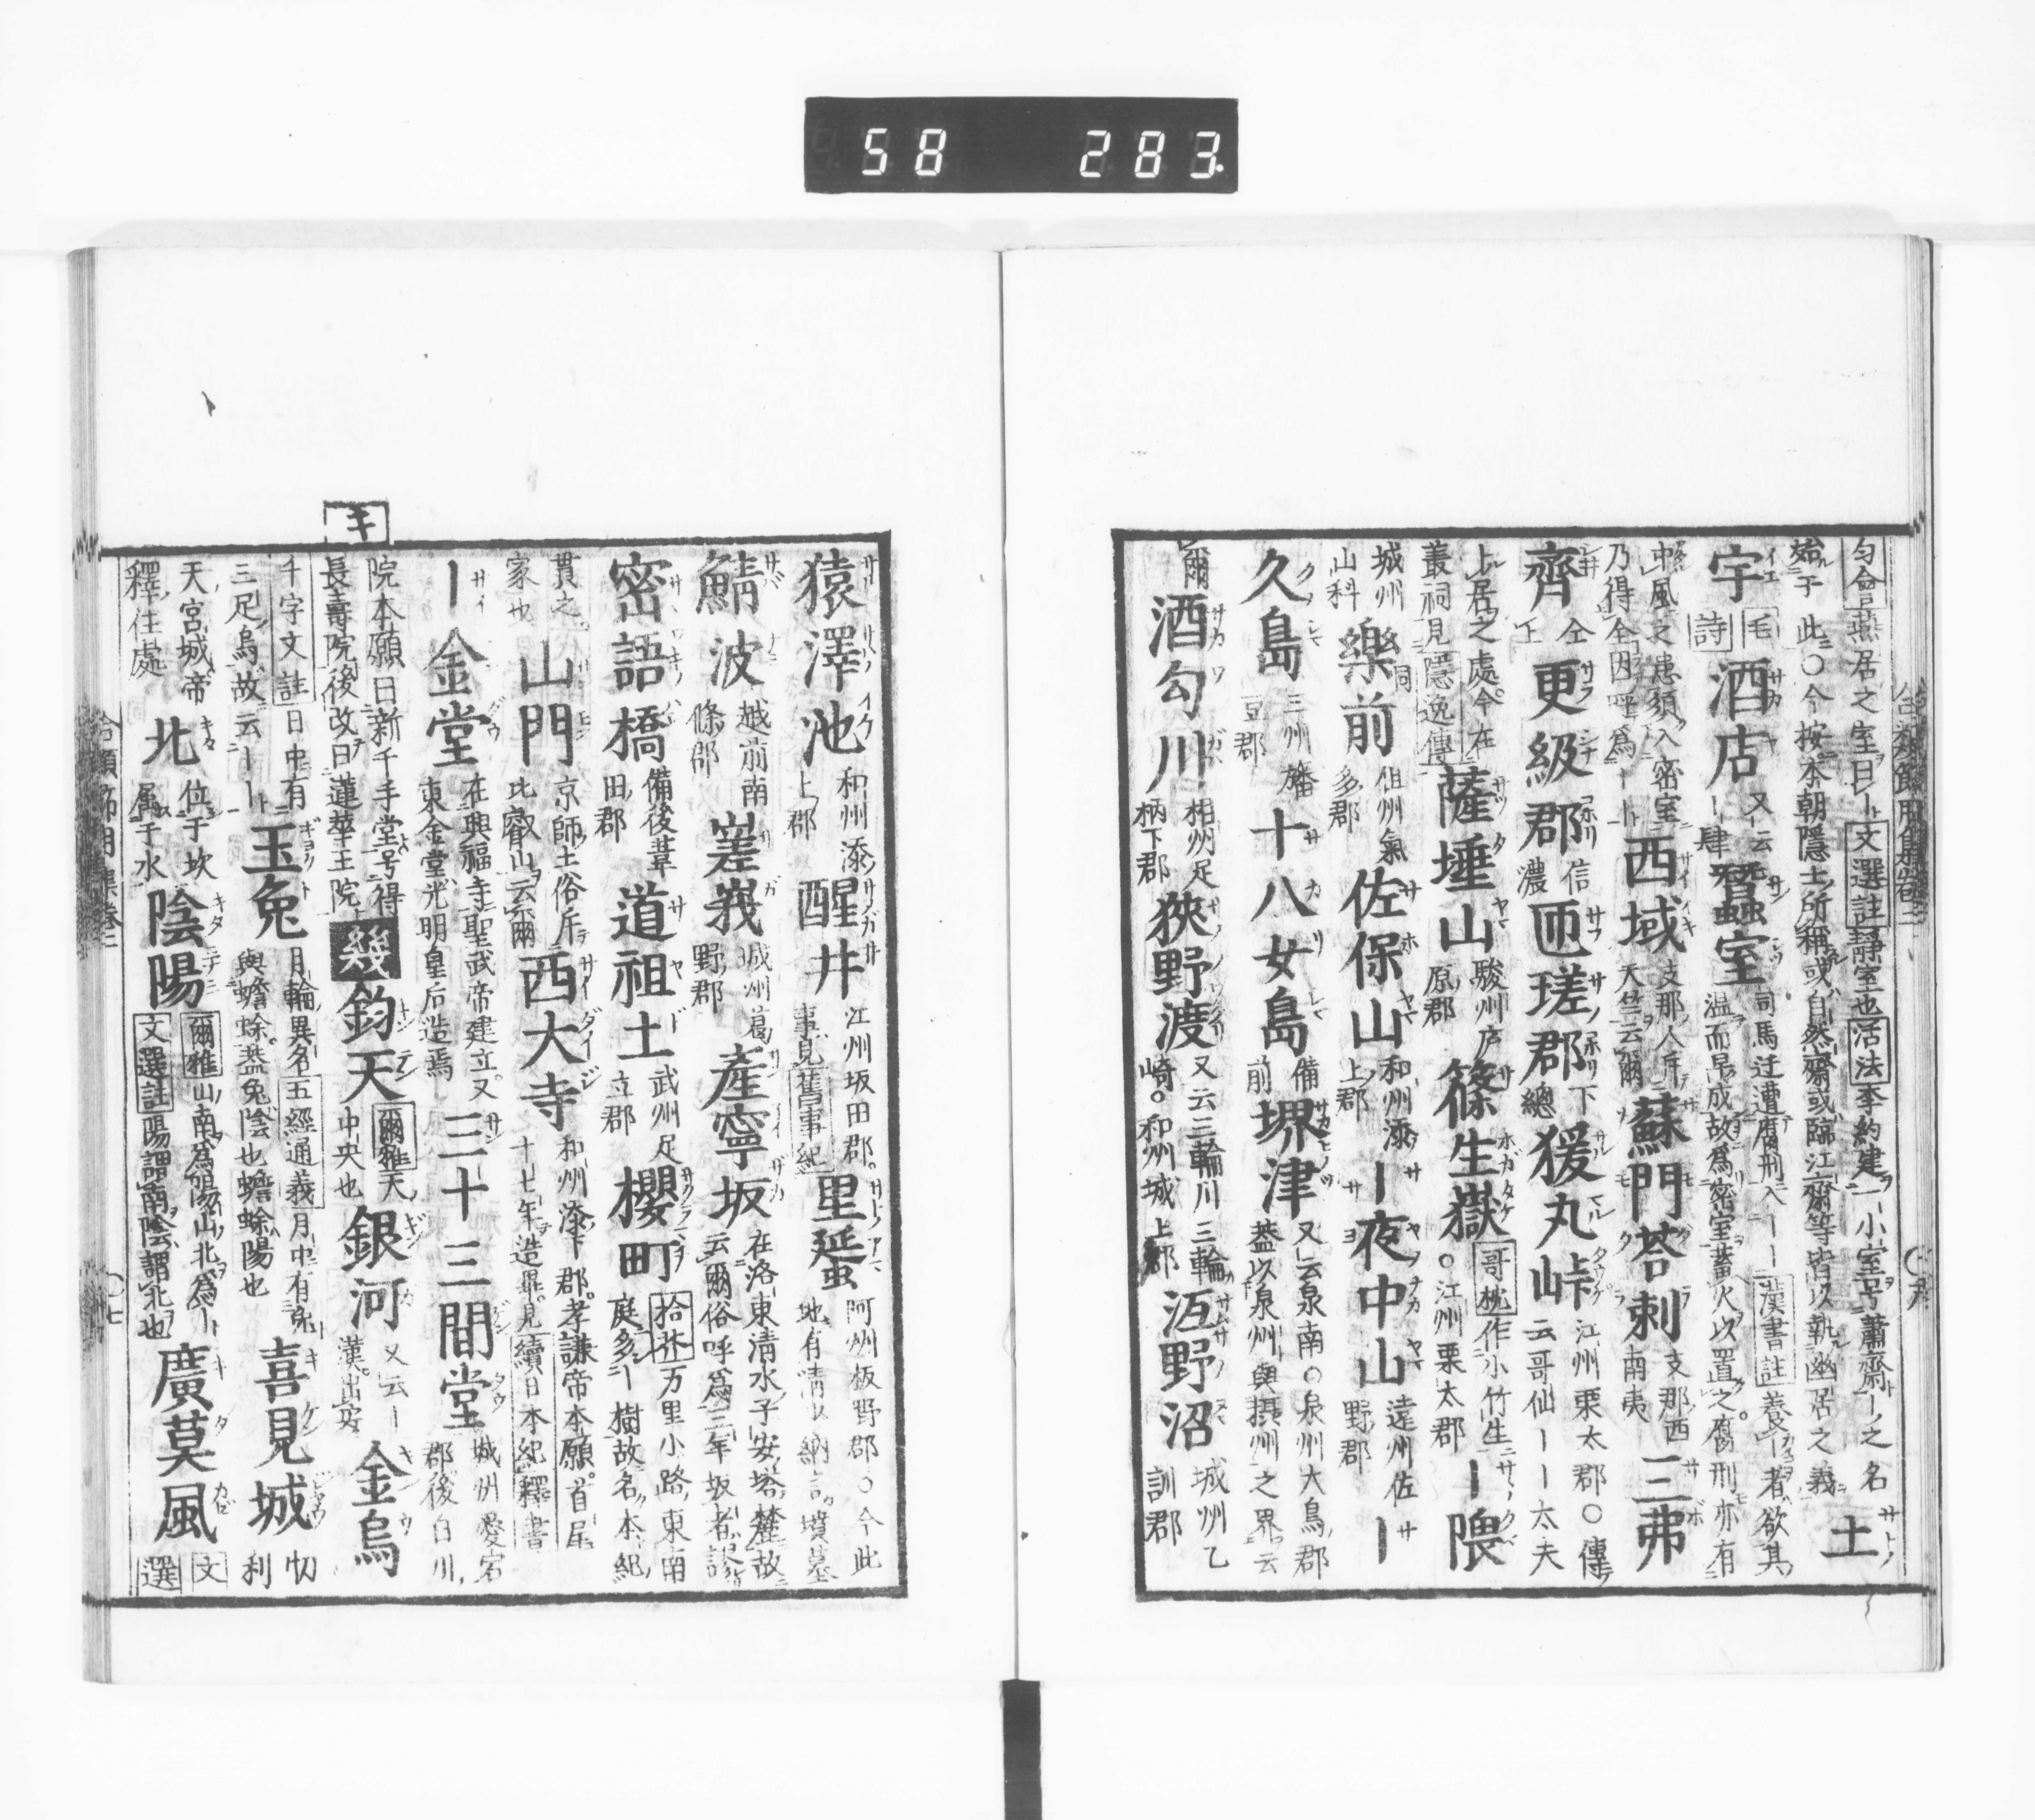 58 283
匀會燕居之室曰ー文選註靜室也活法李約建一小室号蕭齋ーノ之名
始于此○今按本朝隱士所稱或自然齋或臨江齋等皆以執幽居之義 土
宇 毛詩 酒店 又云ー肆 蠶室 司馬迁遭腐刑入ーー漢書註養ー者欲其
温而早成故爲密室蓄火以置之腐刑亦有
中風之患須入密室
乃得全因呼爲ーー 西域 支那人斥天竺云爾 蘇門荅剌 支那西南夷 三弗
齊 仝上 更級郡 信濃 匝瑳郡 下總 猨丸峠 江州栗太郡○傳云哥仙ーー太夫
上居之處今在
叢祠見隱逸傳 薩埵山 駿州庐原郡 篠生嶽 哥枕作小竹生○江州栗太郡 ー隈
城州山科 樂前 但州氣多郡 佐保山 和州添上郡 ー夜中山 遠州佐野郡 ー
久島 三州幡豆郡 十八女島 備前 堺津 又云泉南○泉州大鳥郡蓋以泉州與摂州之界云
爾 酒匂川 相州足柄下郡 狹野渡 又云三輪川三輪崎。和州城上郡 沍野沼 城州乙訓郡
猿澤池 和州添上郡 醒井 江州坂田郡。事見舊事紀 里蜑 阿州板野郡○今此地有清以納言墳墓
鯖波 越前南條郡 嵳峩 城州葛野郡 產寧坂 在洛東清水子安塔麓故云爾俗呼爲三年坂者謬
密語橋 備後葦田郡 道祖土 武州足立郡 櫻町 拾芥万里小路東南庭多ー樹故名本紀
貫之家也 山門 京師土俗斥比叡山云爾 西大寺 和州添下郡。孝謙帝本願。首尾十七年造畢。見續日本紀釋書
ー金堂 在興福寺聖武帝建立又東金堂光明皇后造焉 三十三間堂 城州愛宕郡後白川
院本願曰新千手堂号得
長壽院後改曰蓮華王院 キ 幾 鈞天 爾雅天中央也 銀河 又云ー漢。出安 金烏
千字文註日中有
三足烏故云ーー 玉兔 月輪異名五經通義月中有兔與蟾蜍。蓋兔陰也蟾蜍陽也 喜見城 忉利
天宮城帝
釋住處 北 位于坎属于水 陰陽 爾雅山南爲陽山北爲ー文選註陽謂南陰謂北也 廣莫風 文選